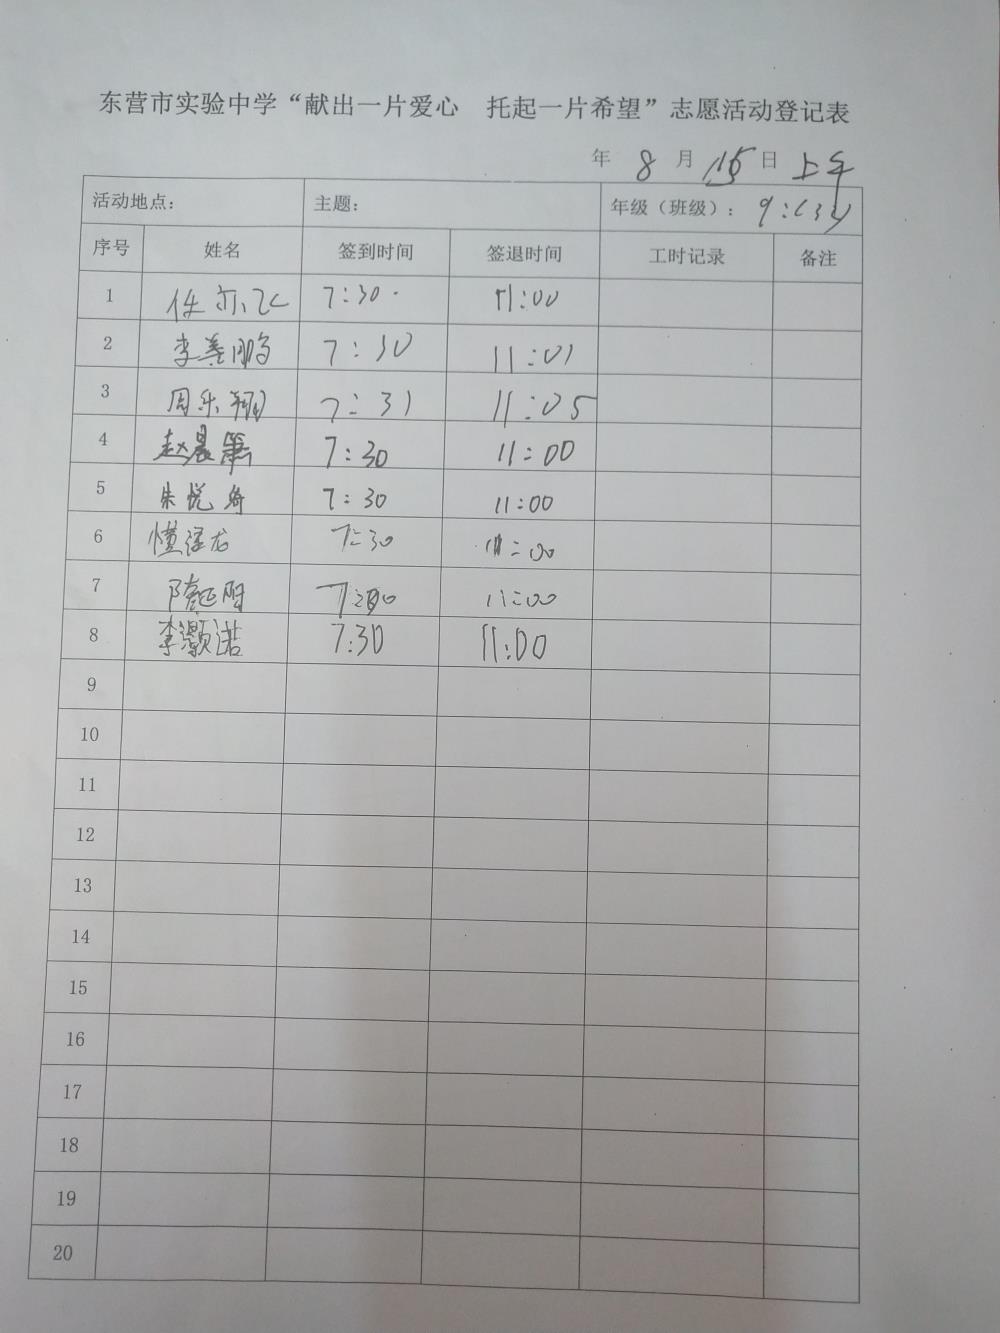 东营市实验中学“献出一片爱心 托起一片希望”志愿活动登记表
年 8 月 15 日 上午
活动地点： 主题： 年级（班级）：
序号 姓名 签到时间 签退时间 工时记录 备注
1 任亦飞 7:30 11:00
2 李善鹏 7:30 11:01
3 周乐翔 7:31 11:05
4 赵晨 7:30 11:00
5 朱悦 7:30 11:00
6 7:30 11:00
7 11:00
8 李灏诺 7:30 11:00
9
10
11
12
13
14
15
16
17
18
19
20